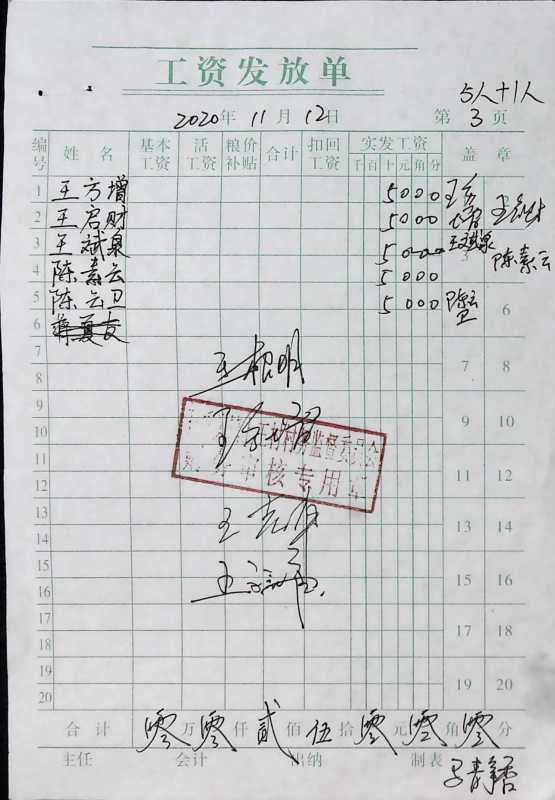 工资发放单
5人+1人
2020年 11月 12日 第 3 页
编号 姓名 基本工资 活工资 粮价补贴 合计 扣回工资 实发工资 千百十元角分 盖章
1 王方增 5000
2 王启财 5000
3 王斌泉 5000 王斌泉
4 陈素云 5000 陈素云
5 陈云卫 5000 陈云卫 6
6
7 7 8
8
9 9 10
10
村务监督委员会
审核专用章
11 11 12
12
13 13 14
14
15 15 16
16
17 17 18
18
19 19 20
20
合计 零万零仟贰佰伍拾零元零角零分
主任 会计 出纳 制表